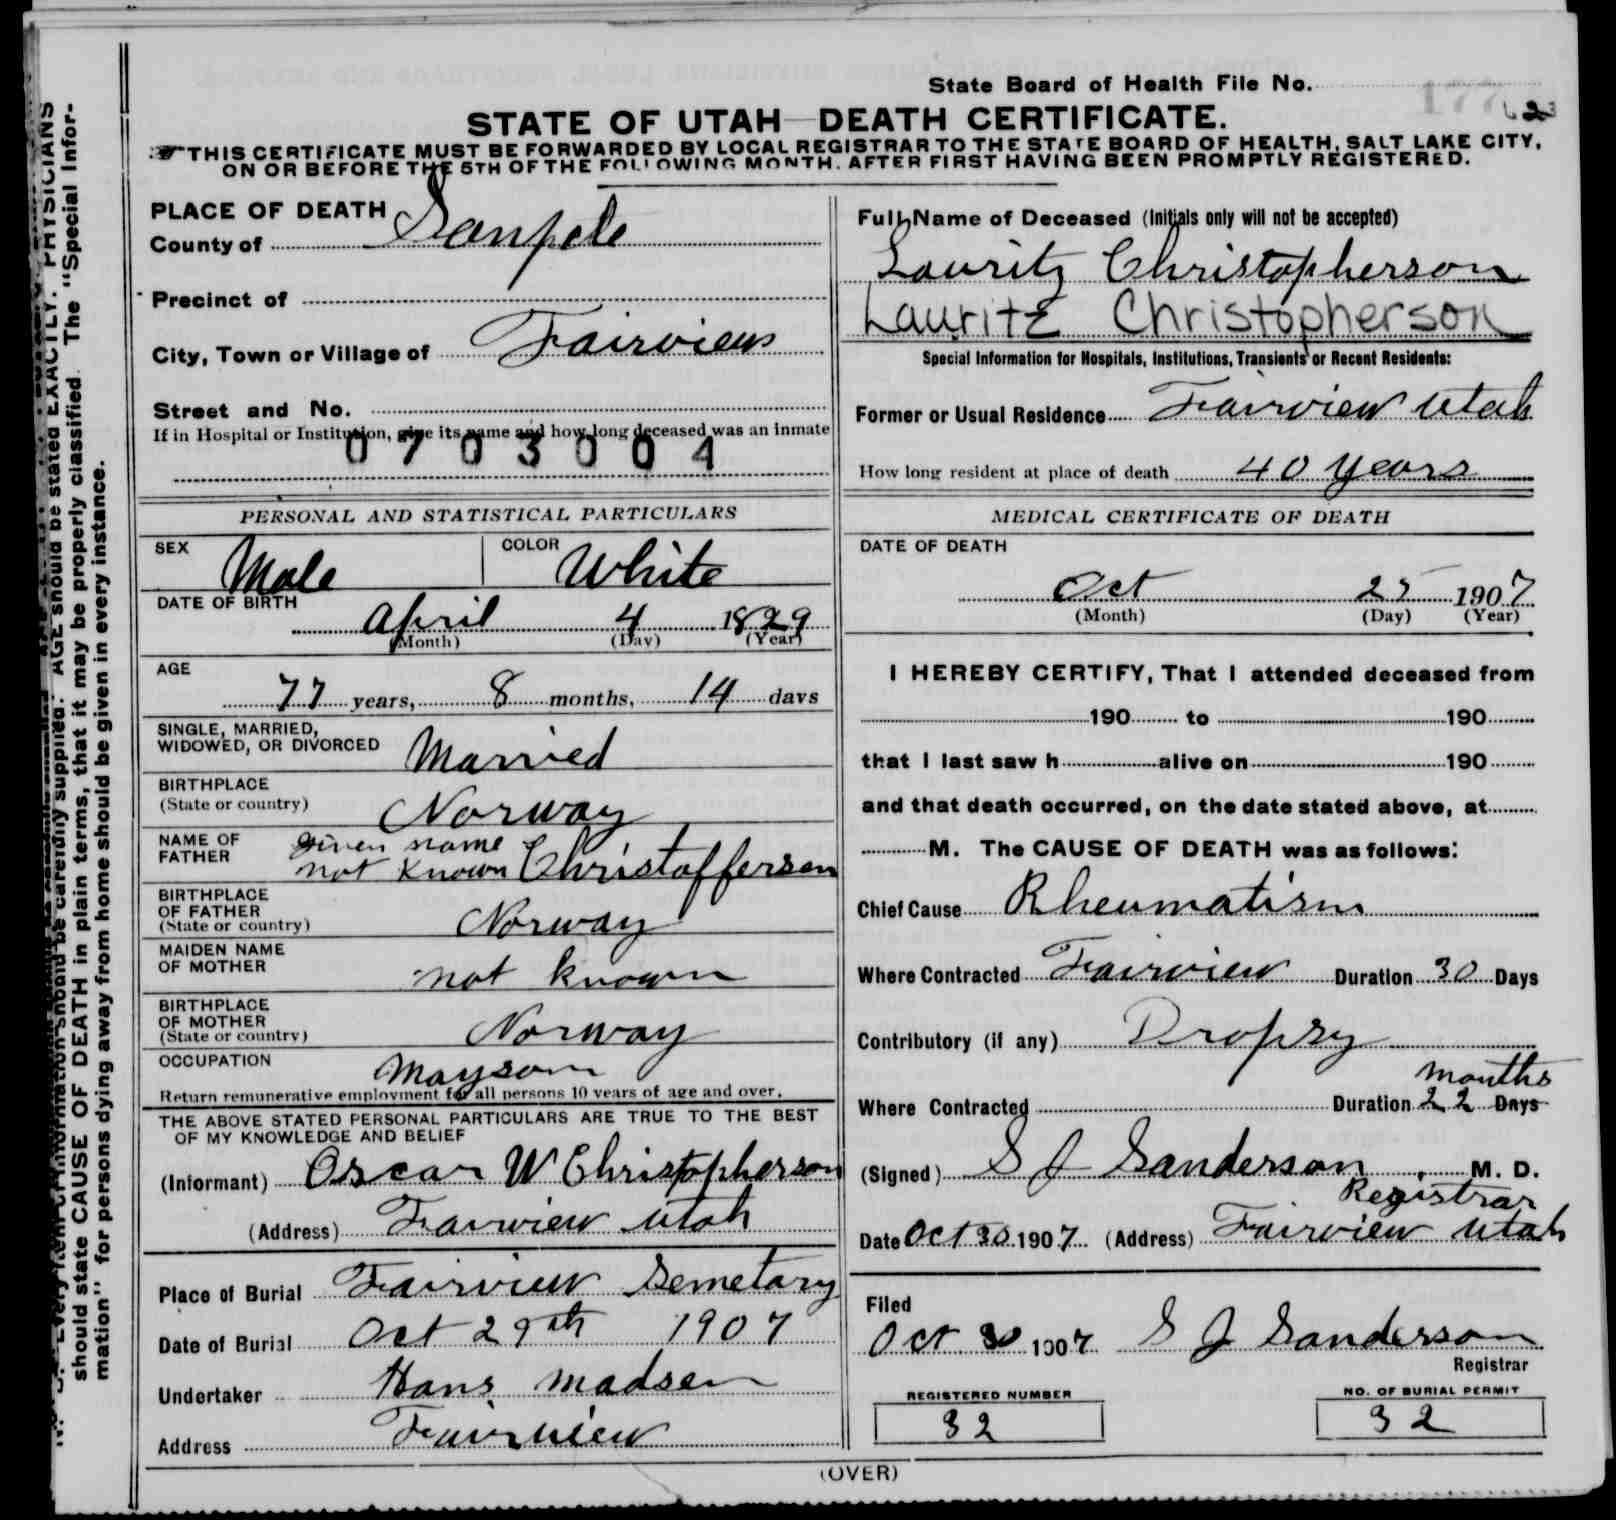 State Board of Health File No. 177
STATE OF UTAH—DEATH CERTIFICATE.
THIS CERTIFICATE MUST BE FORWARDED BY LOCAL REGISTRAR TO THE STATE BOARD OF HEALTH, SALT LAKE CITY,
ON OR BEFORE THE 5TH OF THE FOLLOWING MONTH. AFTER FIRST HAVING BEEN PROMPTLY REGISTERED.
PLACE OF DEATH
County of Sanpete
Precinct of
City, Town or Village of Fairview
Street and No.
If in Hospital or Institution, give its name and how long deceased was an inmate
0703004
PERSONAL AND STATISTICAL PARTICULARS
SEX Male COLOR White
DATE OF BIRTH
April 4 1829
(Month) (Day) (Year)
AGE
77 years, 8 months, 14 days
SINGLE, MARRIED,
WIDOWED, OR DIVORCED Married
BIRTHPLACE
(State or country) Norway
NAME OF FATHER given name
not known Christofferson
BIRTHPLACE
OF FATHER
(State or country) Norway
MAIDEN NAME
OF MOTHER not known
BIRTHPLACE
OF MOTHER
(State or country) Norway
OCCUPATION Mayson
Return remunerative employment for all persons 10 years of age and over.
THE ABOVE STATED PERSONAL PARTICULARS ARE TRUE TO THE BEST
OF MY KNOWLEDGE AND BELIEF
(Informant) Oscar W Christopherson
(Address) Fairview Utah
Place of Burial Fairview Semetary
Date of Burial Oct 29th 1907
Undertaker Hans Madsen
Address Fairview
Full Name of Deceased (Initials only will not be accepted)
Lauritz Christopherson
Lauritz Christopherson
Special Information for Hospitals, Institutions, Transients or Recent Residents:
Former or Usual Residence Fairview Utah
How long resident at place of death 40 years
MEDICAL CERTIFICATE OF DEATH
DATE OF DEATH
Oct 25 1907
(Month) (Day) (Year)
I HEREBY CERTIFY, That I attended deceased from
190 to 190
that I last saw h alive on 190
and that death occurred, on the date stated above, at
M. The CAUSE OF DEATH was as follows:
Chief Cause Rheumatism
Where Contracted Fairview Duration 30 Days
Contributory (if any) Dropsy
months
Where Contracted Duration 22 Days
(Signed) S J Sanderson M. D.
Registrar
Date Oct 30 1907 (Address) Fairview Utah
Filed
Oct 30 1907 S J Sanderson
Registrar
REGISTERED NUMBER
32
NO. OF BURIAL PERMIT
32
(OVER)
AGE should be stated EXACTLY. PHYSICIANS
should state CAUSE OF DEATH in plain terms, that it may be properly classified. The "Special Infor-
mation" for persons dying away from home should be given in every instance.